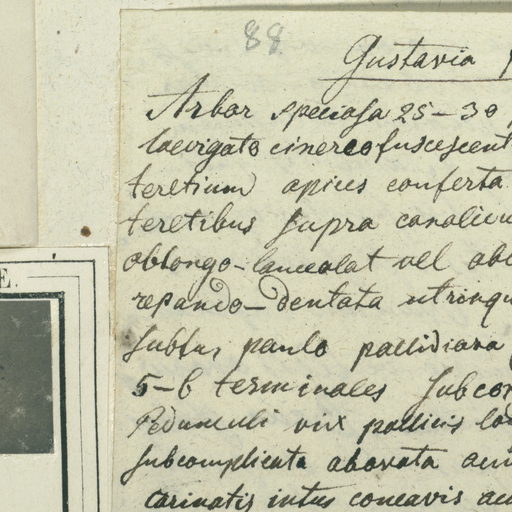 88
Gustavia
Arbor speciosa 25-30
laevigato cinereofuscescent
teretium apices conferta
teretibus supra canalicu
oblongo-lanceolat vel obo
repando-dentata utrinqu
E.
subtus paulo pallidiora
5-6 terminales subcor
Pedunculi vix pollicis lo
subcomplicata obovata acu
carinatis intus concavis ac